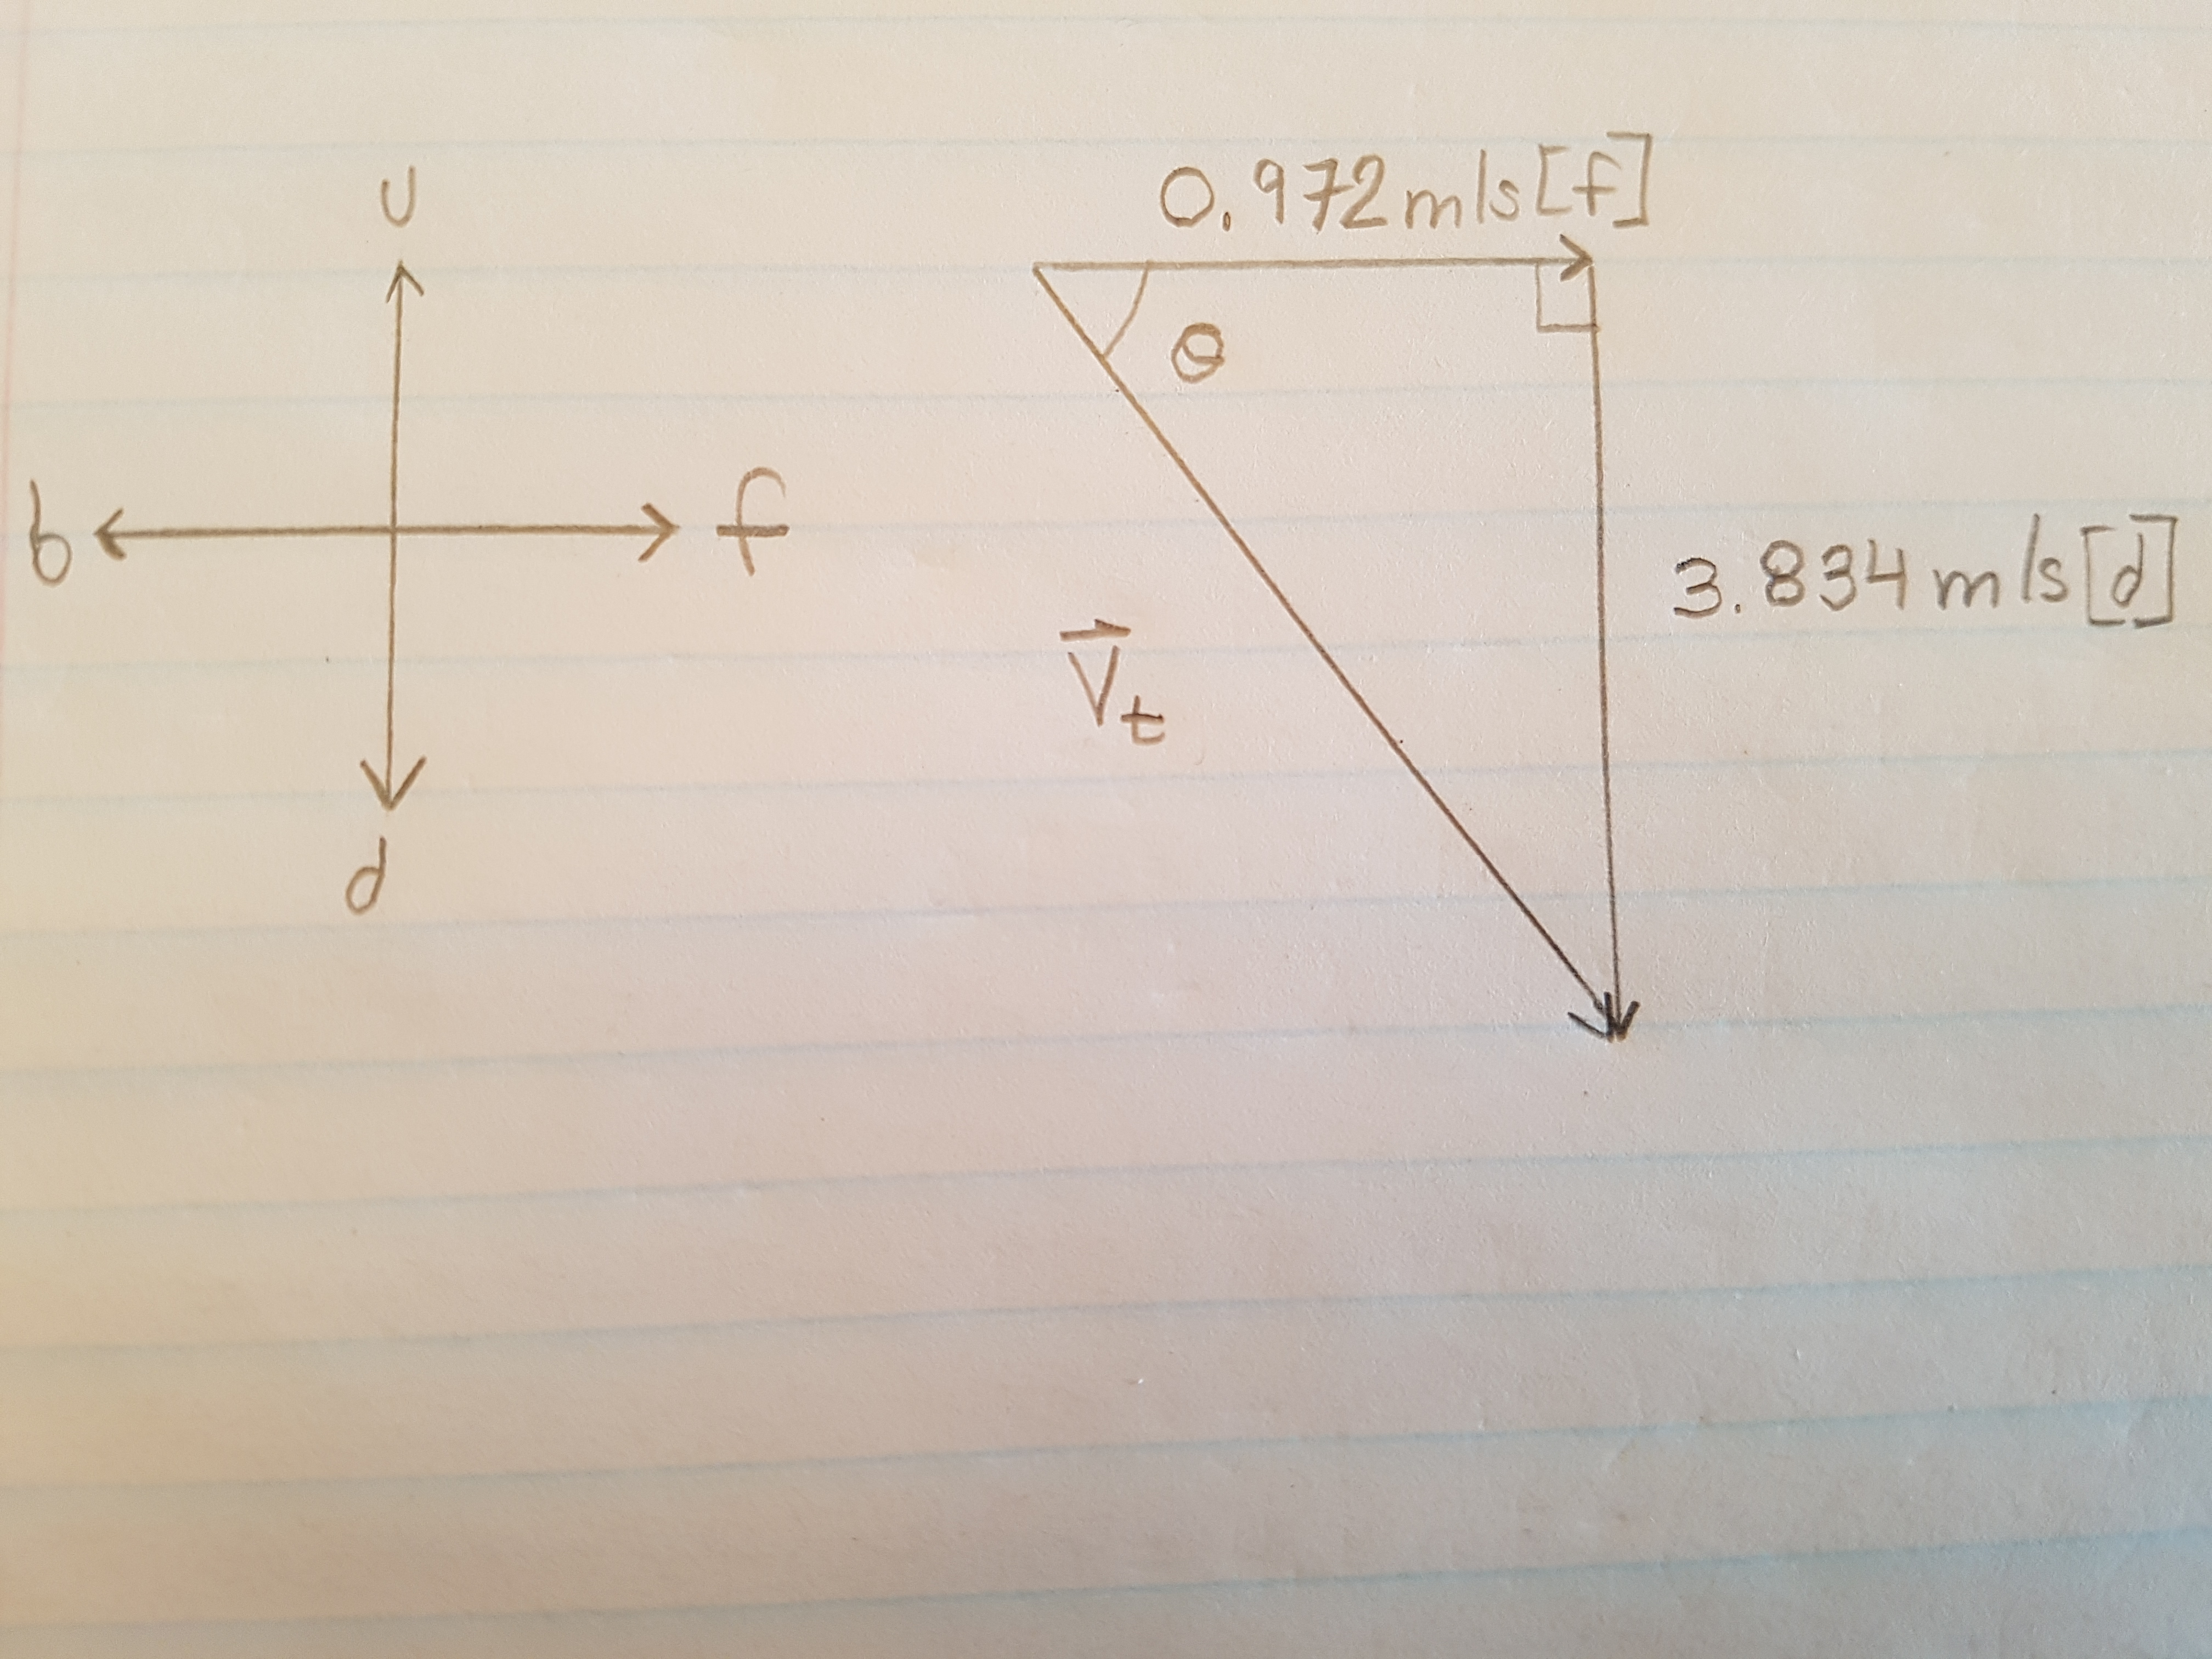 u
b
f
d
0.972 m/s [f]
θ
3.834 m/s [d]
V⃗t